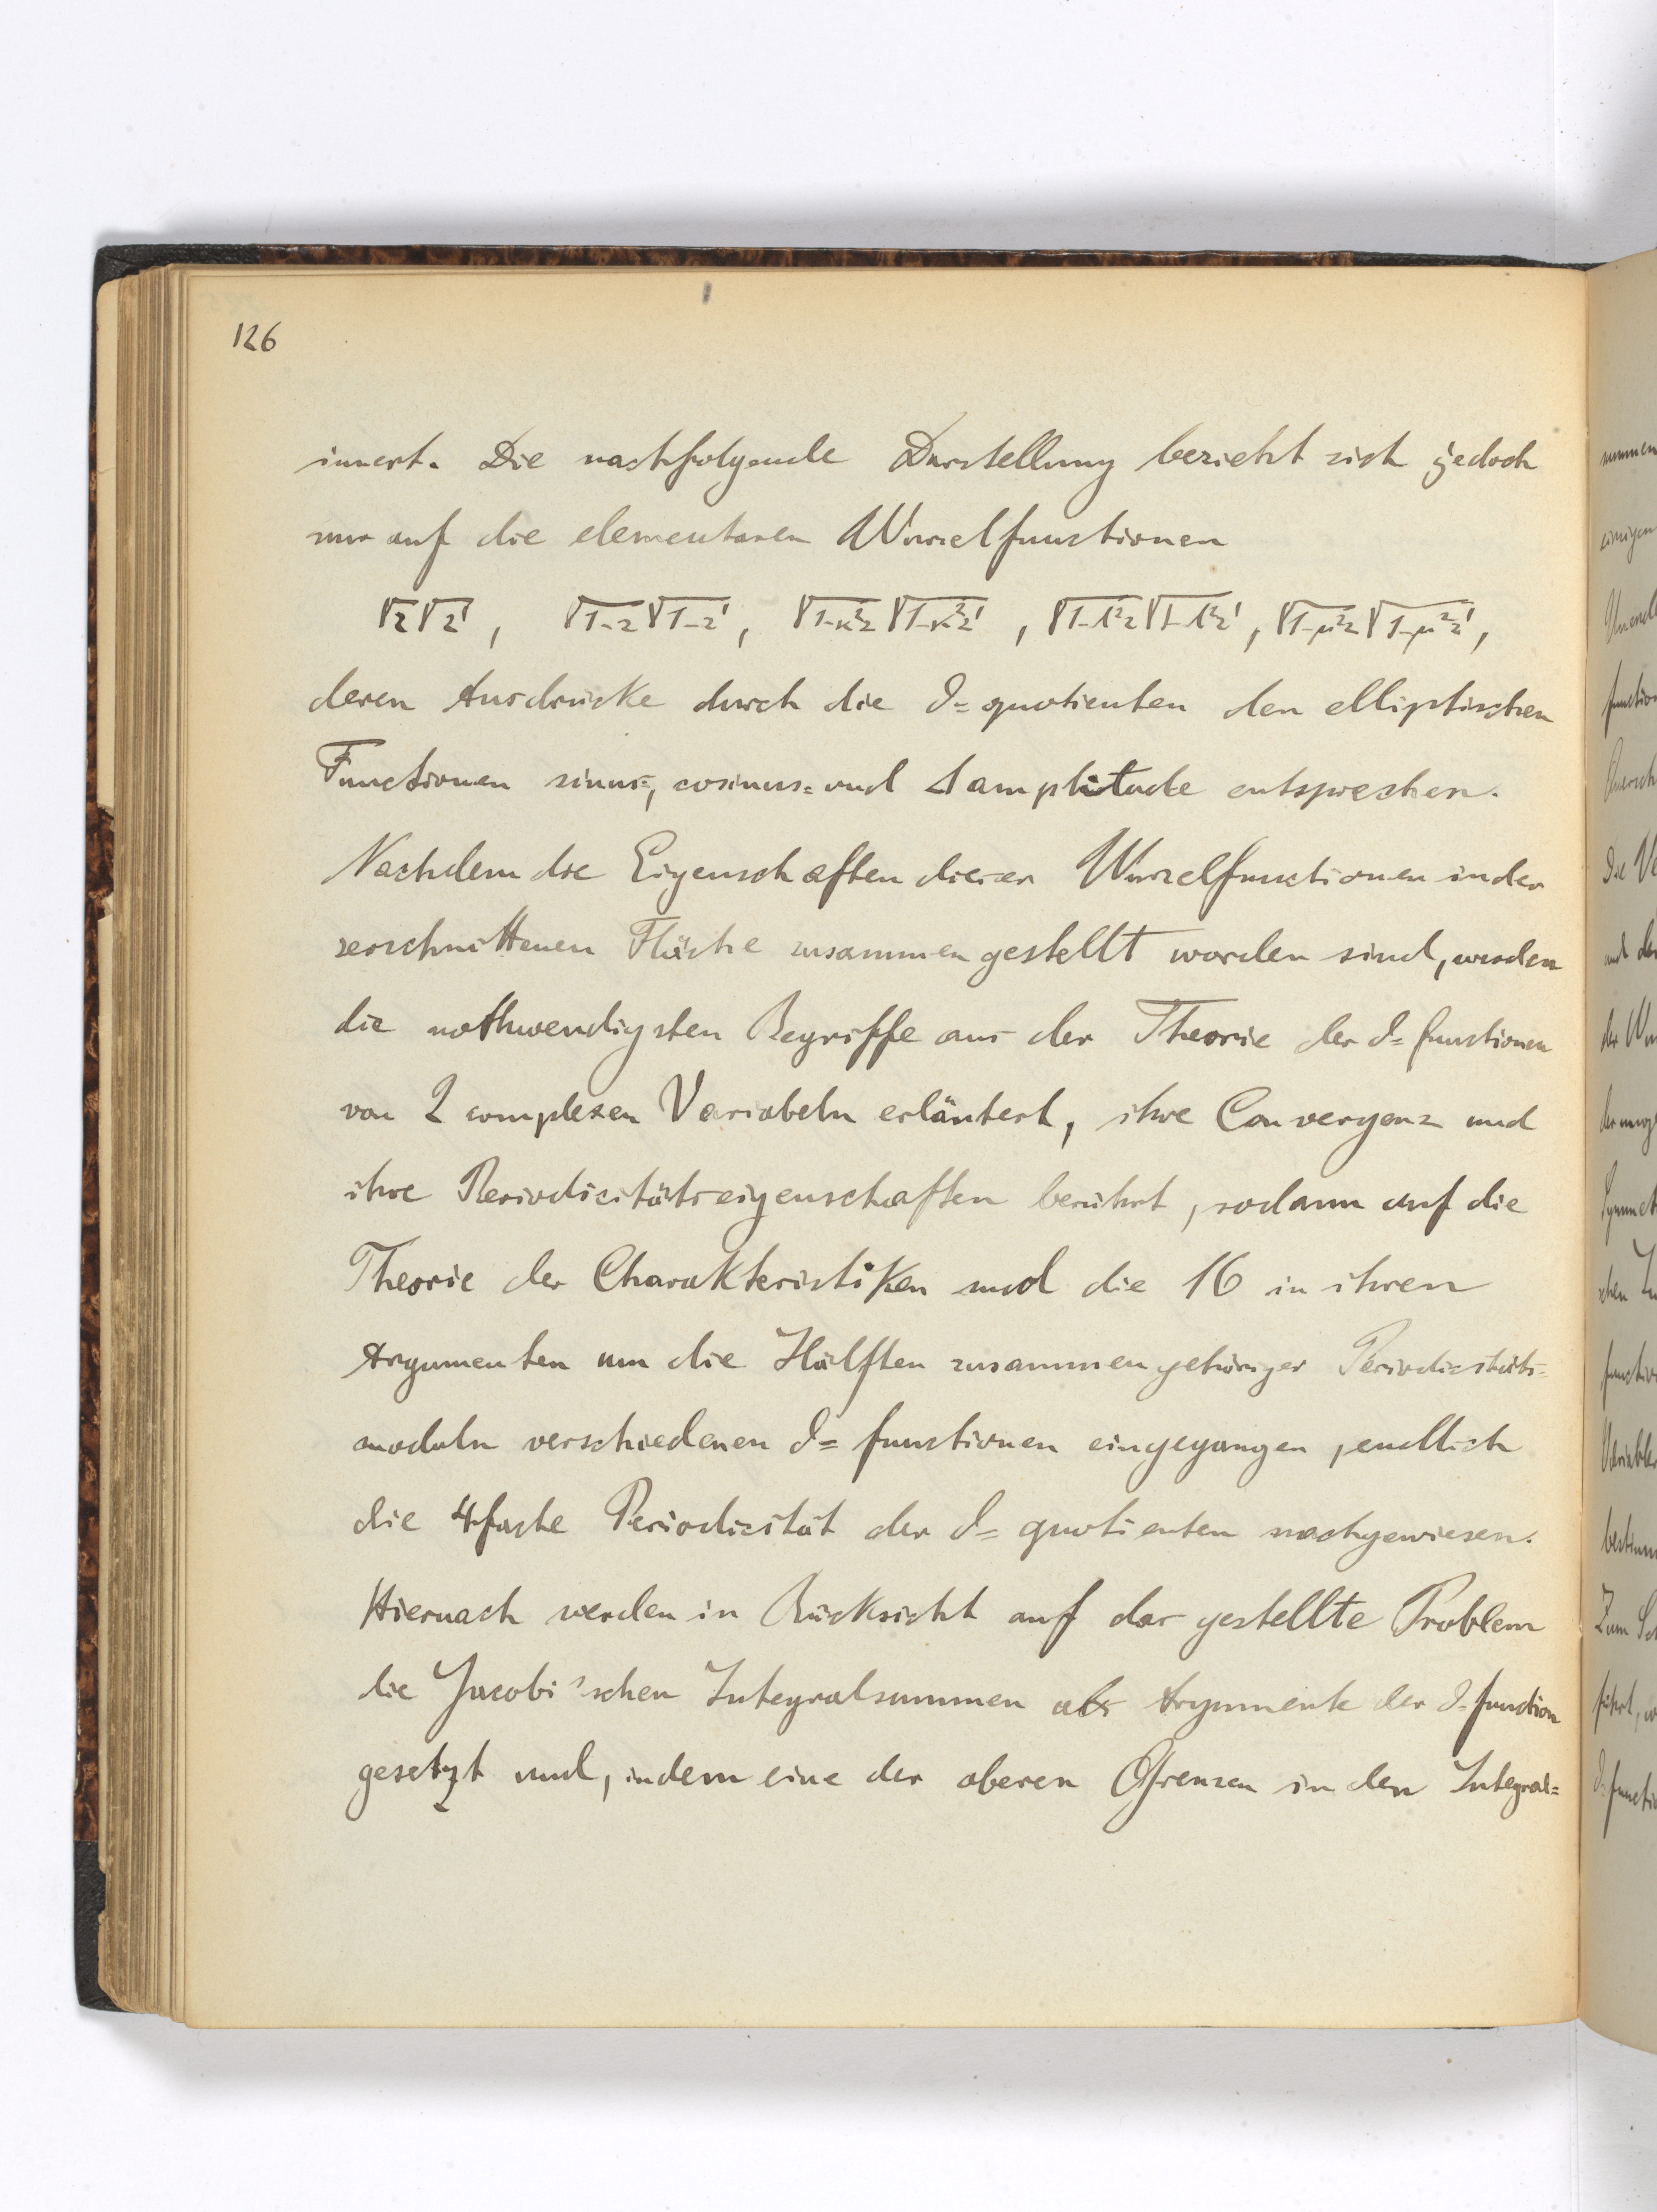 126
innert. Die nachfolgende Darstellung bezieht sich jedoch
nur auf die elementaren Wurzelfunctionen
√z√z', √1-z√1-z', √1-κ²z√1-κ²z', √1-λ²z√1-λ²z', √1-μ²z√1-μ²z',
deren Ausdrücke durch die ϑ=quotienten den elliptischen
Functionen sinus=, cosinus= und Δ amplitude entsprechen.
Nachdem die Eigenschaften dieser Wurzelfunctionen in der
zerschnittenen Fläche zusammengestellt worden sind, werden
die nothwendigsten Begriffe aus der Theorie der ϑ=functionen
von 2 complexen Variabeln erläutert, ihre Convergenz und
ihre Periodicitätseigenschaften berührt, sodann auf die
Theorie der Charakteristiken und die 16 in ihren
Argumenten um die Hälften zusammengehöriger Periodicitäts=
moduln verschiedenen ϑ=functionen eingegangen, endlich
die 4fache Periodicität der ϑ=quotienten nachgewiesen.
Hiernach werden in Rücksicht auf das gestellte Problem
die Jacobi'schen Integralsummen als Argumente der ϑ-function
gesetzt und, indem eine der oberen Grenzen in den Integral=